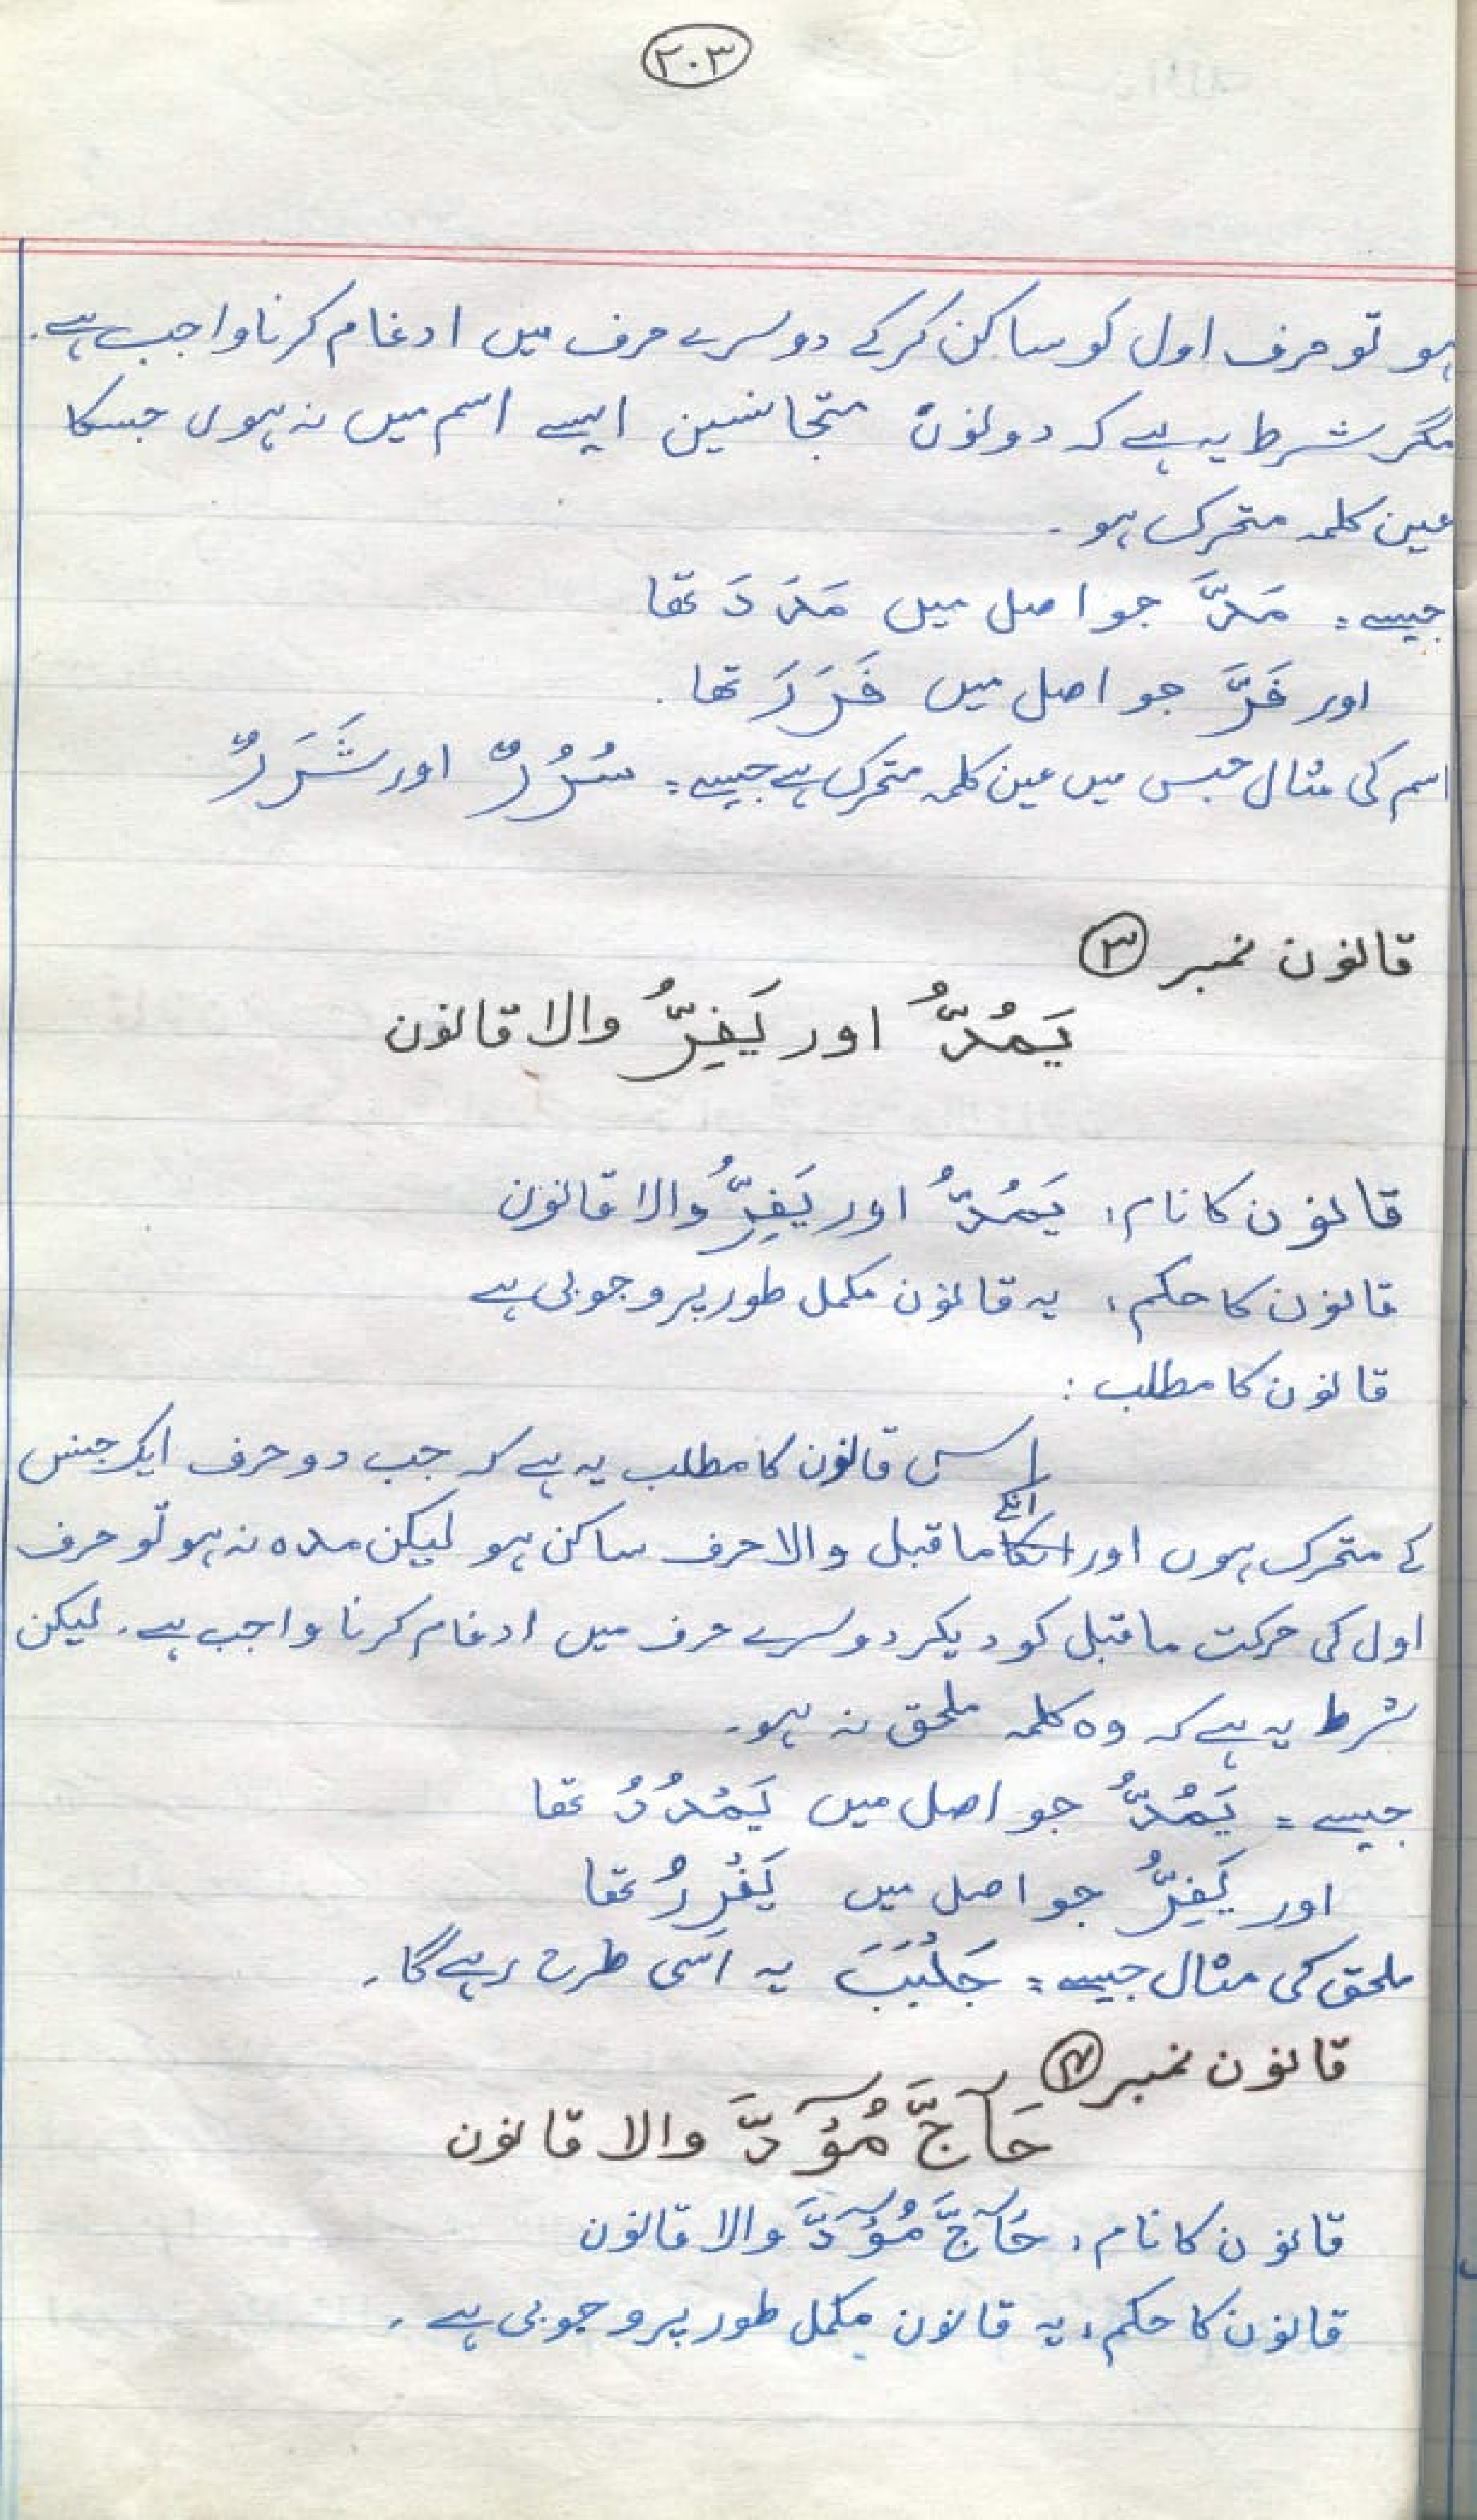 ۲۰۳
ہو تو حرف اول کو ساکن کرکے دوسرے حرف میں ادغام کرنا واجب ہے۔
مگر شرط یہ ہے کہ دونوں متجانسین ایسے اسم میں نہ ہوں جسکا
عین کلمہ متحرک ہو۔
جیسے = مَدَّ جو اصل میں مَدَدَ تھا
اور فَرَّ جو اصل میں فَرَرَ تھا۔
اسم کی مثال جس میں عین کلمہ متحرک ہے جیسے = سُرُرٌ اور شَرَرٌ
قانون نمبر ۳
یَمُدُّ اور یَفِرُّ والا قانون
قانون کا نام: یَمُدُّ اور یَفِرُّ والا قانون
قانون کا حکم: یہ قانون مکمل طور پر وجوبی ہے
قانون کا مطلب:
اس قانون کا مطلب یہ ہے کہ جب دو حرف ایک جنس
کے متحرک ہوں اور انکے ماقبل والا حرف ساکن ہو لیکن مدہ نہ ہو تو حرف
اول کی حرکت ماقبل کو دیکر دوسرے حرف میں ادغام کرنا واجب ہے۔ لیکن
شرط یہ ہے کہ وہ کلمہ ملحق نہ ہو۔
جیسے = یَمُدُّ جو اصل میں یَمْدُدُ تھا
اور یَفِرُّ جو اصل میں یَفْرِرُ تھا
ملحق کی مثال جیسے = جَلْبَبَ یہ اسی طرح رہے گا۔
قانون نمبر ۴
حَآجَّ مُوْٓدَّ والا قانون
قانون کا نام: حَآجَّ مُوْٓدَّ والا قانون
قانون کا حکم: یہ قانون مکمل طور پر وجوبی ہے۔